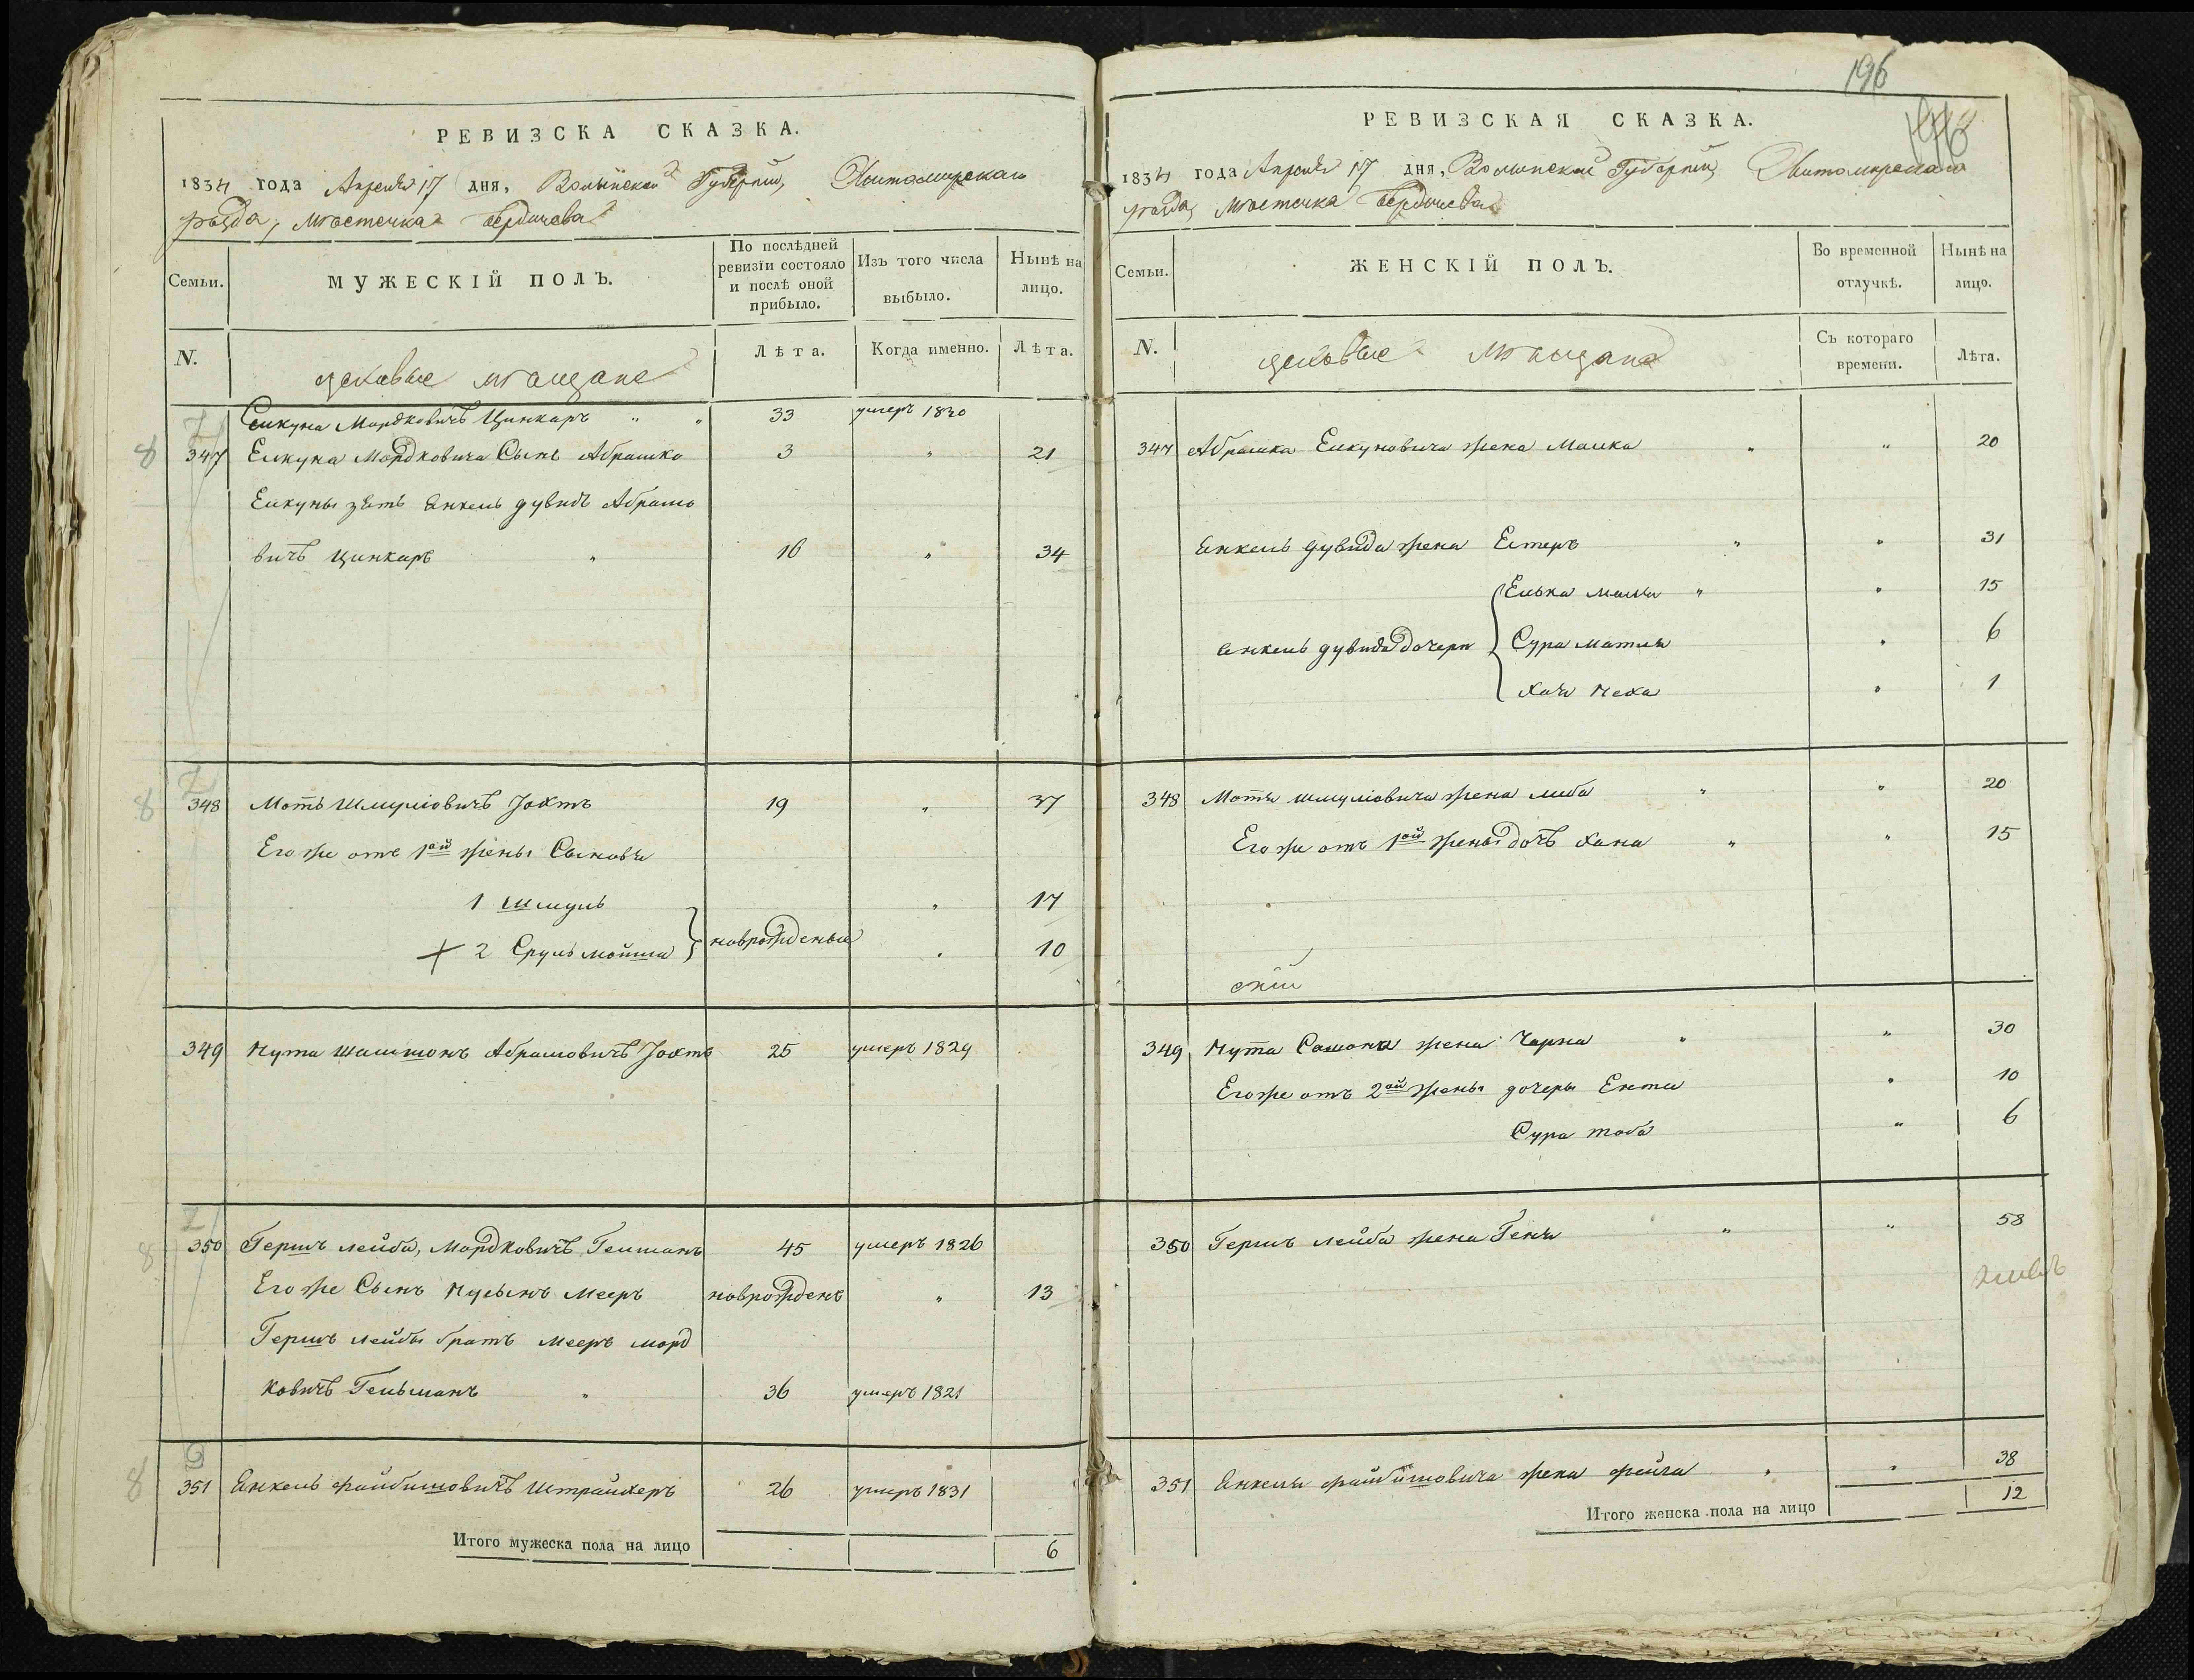 196
РЕВИЗСКА СКАЗКА.
1834 года Апреля 17 дня, Волынской Губернии, Житомирскаго
уезда, местечка Бердичева
Семьи.
МУЖЕСКІЙ ПОЛЪ.
По послѣдней ревизіи состояло и послѣ оной прибыло.
Изъ того числа выбыло.
Нынѣ на лицо.
N.
цеховые мещане
Лѣта.
Когда именно.
Лѣта.
Мордковичъ Цинкаръ " " 33 умеръ 1830
8 347 Мордковича Сынъ Абрашко 3 " 21
зять Янкель дувидъ Абрамо
вичъ цинкаръ " 16 " 34
8 348 Моть Шмуліовичъ Іохтъ 19 " 37
Его же отъ 1ой жены Сыновья
1 Шмуль " 17
+ 2 Сруль мойша } новрожденые " 10
349 Нута Шамшонъ Абрамовичъ Іохтъ 25 умеръ 1829
8 350 Гершъ лейба, Мордковичъ Гельманъ 45 умеръ 1826
Его же Сынъ Нусынъ Мееръ новрожденъ " 13
Гершъ лейбы братъ Мееръ морд
ковичъ Гельманъ " 36 умеръ 1821
8 351 Янкель файбишовичъ Штрайхеръ 26 умеръ 1831
Итого мужеска пола на лицо 6
РЕВИЗСКАЯ СКАЗКА.
1834 года Апреля 17 дня, Волынской Губернии, Житомирскаго
уезда, местечка Бердичева
Семьи.
ЖЕНСКІЙ ПОЛЪ.
Во временной отлучкѣ.
Нынѣ на лицо.
N.
цеховые мещане
Съ котораго времени.
Лѣта.
347 Абрашка жена Малка " " 20
Янкель дувида жена Естеръ " " 31
Янкель дувида дочери { " " 15
Сура матля " 6
Хая Неха " 1
348 Мотя шмуліовича жена либа " " 20
Его же отъ 1ой жены дочь хана " " 15
349 Нута жена Чарна " " 30
Его же отъ 2ой жены дочеры Ентя " 10
Сура тоба " 6
350 Гершъ лейба жена Геня " " 58
351 Янкеля файбишовича жена фейга " " 38
Итого женска пола на лицо 12